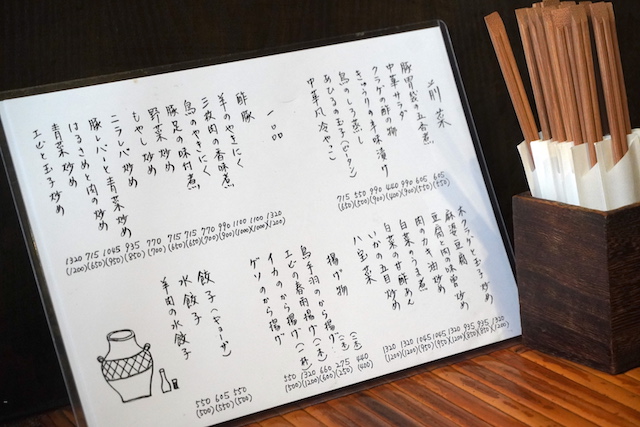 前菜
豚胃袋の五香煮 605 (550)
中華サラダ 605 (550)
クラゲの酢の物 990 (900)
きゅうりの辛味漬け 440 (400)
鳥のしょう蒸し 990 (900)
あひるの玉子(ピータン) 550 (500)
中華風冷やっこ 715 (650)
一品
酢豚 1320 (1200)
羊のやきにく 1100 (1000)
三枚肉の香味煮 1100 (1000)
鳥のやきにく 990 (900)
豚足の味付煮 770 (700)
野菜炒め 715 (650)
もやし炒め 715 (650)
ニラレバ炒め 770 (700)
豚レバーと青菜炒め 935 (850)
はるさめと肉の炒め 1045 (950)
青菜炒め 715 (650)
エビと玉子炒め 1320 (1200)
木クラゲと玉子炒め 1320 (1200)
麻婆豆腐 935 (850)
豆腐と肉の味噌炒め 935 (850)
肉のカキ油炒め 1320 (1200)
白菜のうま煮 1045 (950)
白菜の甘酢あん 1045 (950)
いかの五目炒め 1320 (1200)
八宝菜 1320 (1200)
揚げ物
鳥手羽のから揚げ(一本)
エビの春雨揚げ(一本)
イカのから揚げ(一杯)
ゲソのから揚げ
550 1320 660 275 440
(500)(1200)(600)(250)(400)
餃子 550 (500)
水餃子 605 (550)
羊肉の水餃子 550 (500)